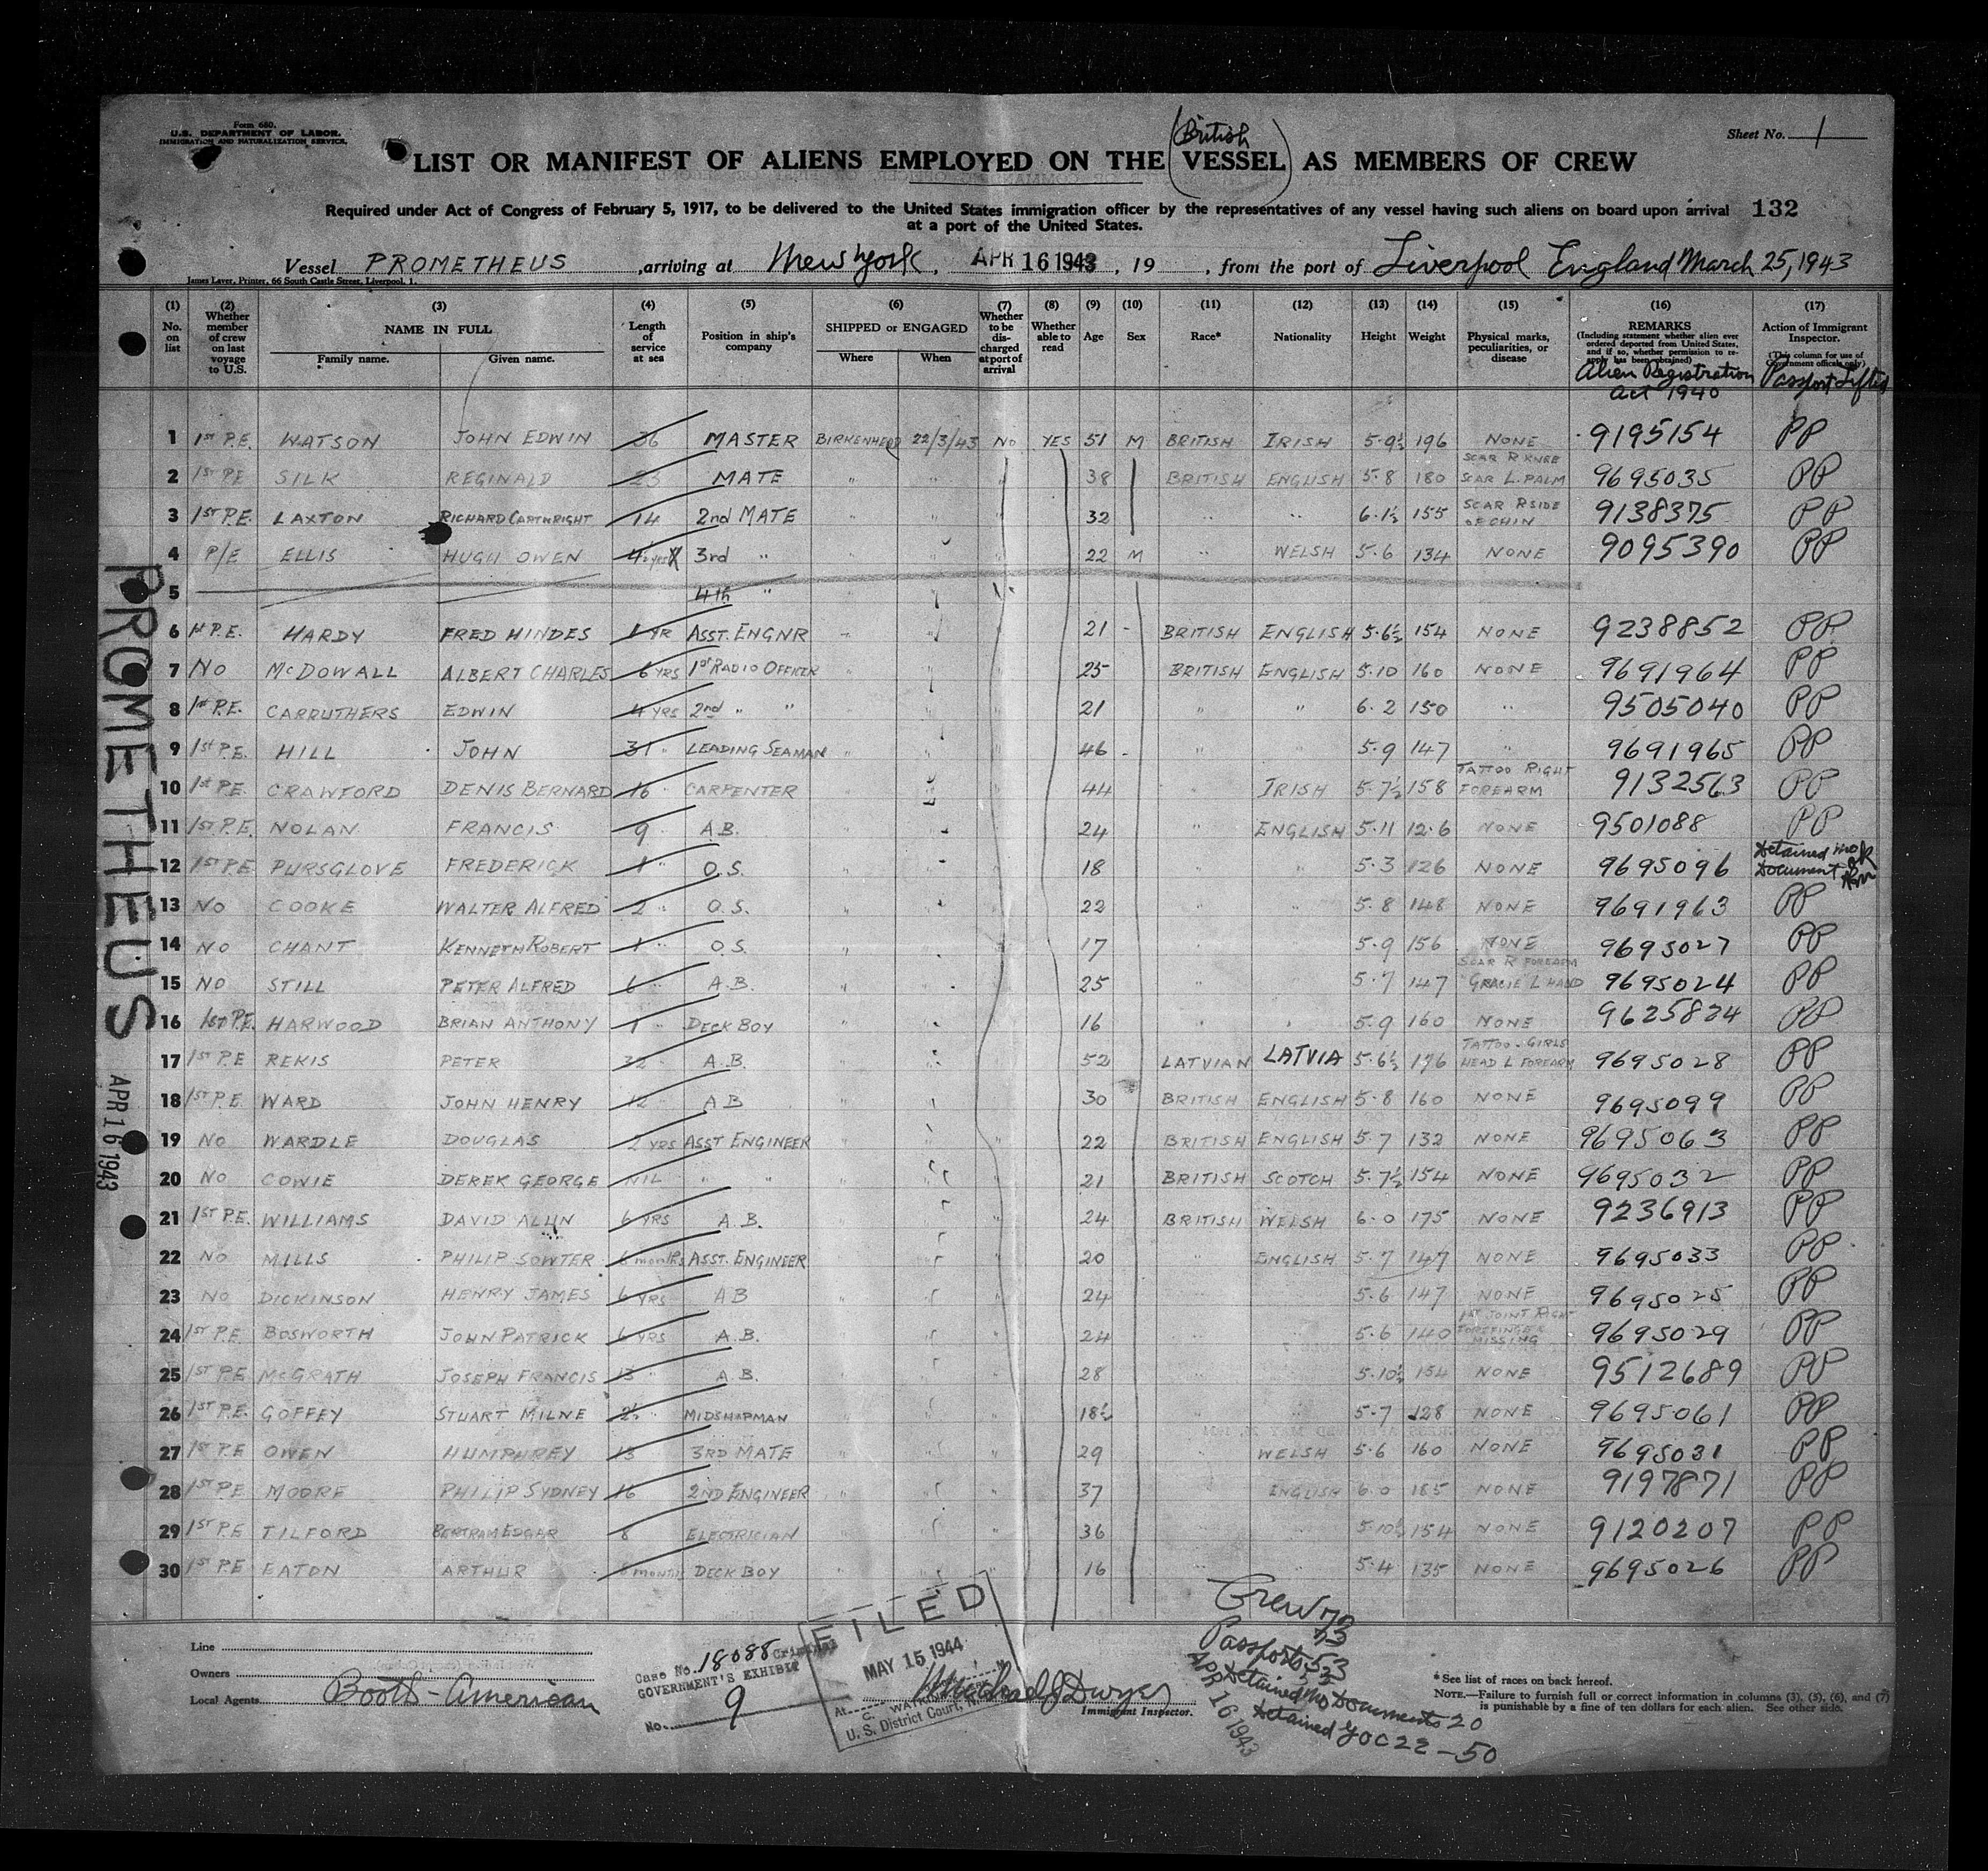 Form 680.
U.S. DEPARTMENT OF LABOR.
IMMIGRATION AND NATURALIZATION SERVICE.
Sheet No. 1
British
LIST OR MANIFEST OF ALIENS EMPLOYED ON THE VESSEL AS MEMBERS OF CREW
Required under Act of Congress of February 5, 1917, to be delivered to the United States immigration officer by the representatives of any vessel having such aliens on board upon arrival 132
at a port of the United States.
Vessel PROMETHEUS, arriving at New York, APR 16 1943, 19 , from the port of Liverpool England March 25, 1943
James Laver, Printer, 66 South Castle Street, Liverpool, 1.
(1) No. on list (2) Whether member of crew on last voyage to U.S. (3) NAME IN FULL Family name. Given name. (4) Length of service at sea (5) Position in ship's company (6) SHIPPED or ENGAGED Where When (7) Whether to be discharged at port of arrival (8) Whether able to read (9) Age (10) Sex (11) Race* (12) Nationality (13) Height (14) Weight (15) Physical marks, peculiarities, or disease (16) REMARKS (Including statement whether alien ever ordered deported from United States, and if so, whether permission to reapply has been obtained) (17) Action of Immigrant Inspector. (This column for use of Government officials only)
Alien Registration Act 1940 Passport Lifted
1 1st P.E. WATSON JOHN EDWIN 36 MASTER BIRKENHEAD 22/3/43 NO YES 51 M BRITISH IRISH 5·9½ 196 NONE 9195154 PP
2 1st PE SILK REGINALD 23 MATE " " " 38 BRITISH ENGLISH 5·8 180 SCAR R KNEE SCAR L. PALM 9695035 PP
3 1ST P.E. LAXTON RICHARD CARTWRIGHT 14 2nd MATE " " " 32 " " 6·1½ 155 SCAR R SIDE OF CHIN 9138375 PP
4 P/E ELLIS HUGH OWEN 3rd " " 22 M " WELSH 5·6 134 NONE 9095390 PP
5 4th "
6 1st P.E. HARDY FRED HINDES 1 YR ASST. ENGNR " " " 21 BRITISH ENGLISH 5·6½ 154 NONE 9238852 PP
7 NO McDOWALL ALBERT CHARLES 6 YRS 1st RADIO OFFICER " " " 25 BRITISH ENGLISH 5·10 160 NONE 9691964 PP
8 1st P.E. CARRUTHERS EDWIN 4 YRS 2nd " " " " " 21 " " 6·2 150 " 9505040 PP
9 1st P.E. HILL JOHN 31 " LEADING SEAMAN " " " 46 " " 5·9 147 " 9691965 PP
10 1st P.E. CRAWFORD DENIS BERNARD 16 " CARPENTER " " " 44 " IRISH 5·7½ 158 TATTOO RIGHT FOREARM 9132563 PP
11 1ST P.E. NOLAN FRANCIS 9 " A.B. " " " 24 " ENGLISH 5·11 12·6 NONE 9501088 PP
12 1ST P.E PURSGLOVE FREDERICK 1 " O.S. " " " 18 " " 5·3 126 NONE 9695096 Detained no Document
13 NO COOKE WALTER ALFRED 2 " O.S. " " " 22 " " 5·8 148 NONE 9691963 PP
14 NO CHANT KENNETH ROBERT 1 " O.S. " " " 17 " " 5·9 156 NONE 9695027 PP
15 NO STILL PETER ALFRED 6 " A.B. " " " 25 " " 5·7 147 SCAR R FOREARM "GRACIE L HAND 9695024 PP
16 1st P.E. HARWOOD BRIAN ANTHONY 1 " DECK BOY " " " 16 " " 5·9 160 NONE 9625824 PP
17 1ST P.E REKIS PETER 32 " A.B. " " " 52 LATVIAN LATVIA 5·6½ 176 TATTOO - GIRLS HEAD L FOREARM 9695028 PP
18 1ST P.E. WARD JOHN HENRY 12 " AB " " " 30 BRITISH ENGLISH 5·8 160 NONE 9695099 PP
19 NO WARDLE DOUGLAS 2 YRS ASST ENGINEER " " " 22 BRITISH ENGLISH 5·7 132 NONE 9695063 PP
20 NO COWIE DEREK GEORGE NIL " " " " " 21 BRITISH SCOTCH 5·7½ 154 NONE 9695032 PP
21 1ST P.E. WILLIAMS DAVID ALUN 6 YRS A.B. " " " 24 BRITISH WELSH 6·0 175 NONE 9236913 PP
22 NO MILLS PHILIP SOWTER 6 months ASST. ENGINEER " " " 20 " ENGLISH 5·7 147 NONE 9695033 PP
23 NO DICKINSON HENRY JAMES 6 YRS AB " " " 24 " " 5·6 147 NONE 9695025 PP
24 1ST P.E. BOSWORTH JOHN PATRICK 6 YRS A.B. " " " 24 " " 5·6 140 1ST JOINT RIGHT FOREFINGER MISSING 9695029 PP
25 1ST P.E McGRATH JOSEPH FRANCIS 13 " A.B. " " " 28 " " 5·10½ 154 NONE 9512689 PP
26 1ST P.E. GOFFEY STUART MILNE 2½ " MIDSHIPMAN " " " 18½ " " 5·7 128 NONE 9695061 PP
27 1ST P.E OWEN HUMPHREY 13 3RD MATE " " " 29 " WELSH 5·6 160 NONE 9695031 PP
28 1ST P.E MOORE PHILIP SYDNEY 16 2ND ENGINEER " " " 37 ENGLISH 6·0 185 NONE 9197871 PP
29 1ST P.E TILFORD BERTRAM EDGAR 8 ELECTRICIAN " " " 36 " " 5·10½ 154 NONE 9120207 PP
30 1ST P.E EATON ARTHUR months DECK BOY " " " 16 " " 5·4 135 NONE 9695026 PP
PROMETHEUS APR 16 1943
Line
Owners
Local Agents Booth-American
Case No. 18088 Criminal
GOVERNMENT'S EXHIBIT
No. 9
FILED
MAY 15 1944
At M
U. S. District Court,
Michael J Dwyer
Immigrant Inspector.
Crew 73
73
Passports 53
APR 16 1943
Detained No Documents 20
Detained 22 - 50
* See list of races on back hereof.
NOTE.—Failure to furnish full or correct information in columns (3), (5), (6), and (7)
is punishable by a fine of ten dollars for each alien. See other side.